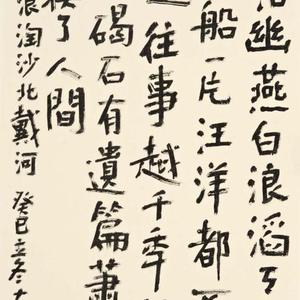 幽燕白浪滔天
船一片汪洋都不
往事越千年
碣石有遺篇蕭
換了人間
浪淘沙北戴河 癸巳立冬